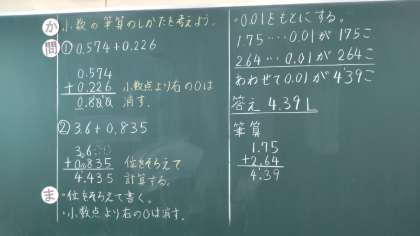 か 小数の筆算のしかたを考えよう。
問 ① 0.574+0.226
0.574
+0.226 小数点より右の0は
0.800 消す。
② 3.6+0.835
3.6
+0.835 位をそろえて
4.435 計算する。
ま ・位をそろえて書く。
・小数点より右の0は消す。
・0.01をもとにする。
1.75……0.01が175こ
2.64…0.01が264こ
あわせて0.01が439こ
答え 4.39L
筆算
1.75
+2.64
4.39